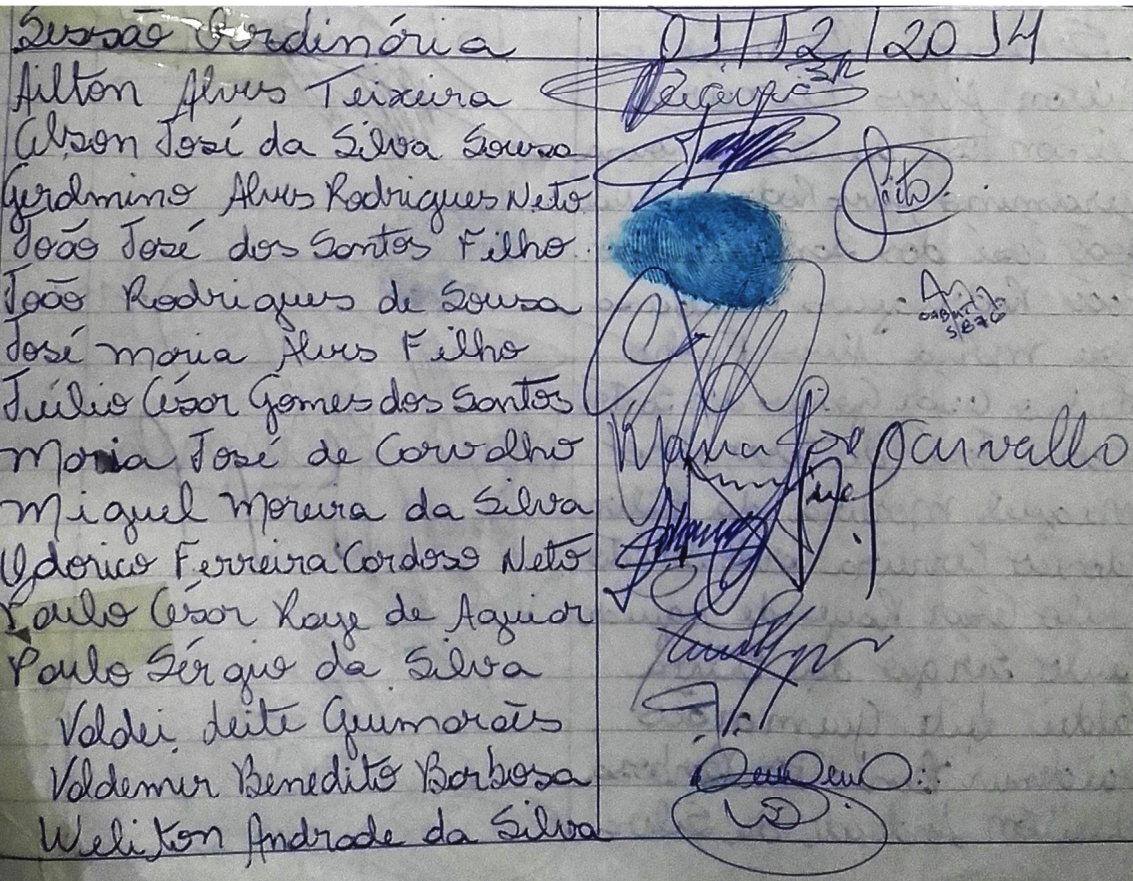 Sessão Oordinória 01/12/2014
Ailton Alves Teixeira
Celson José da Silva Sousa
Gerolmino Alves Rodrigues Neto
João José dos Santos Filho
João Rodrigues de Sousa
José Maria Alves Filho
Júlio César Gomes dos Santos
Maria José de Carvalho Maria José Carvallo
Miguel Moreira da Silva
Odorico Ferreira Cardoso Neto
Paulo César Raye de Aguiar
Paulo Sérgio da Silva
Valdei Leite Guimarães
Valdemir Benedito Barbosa
Weliton Andrade da Silva